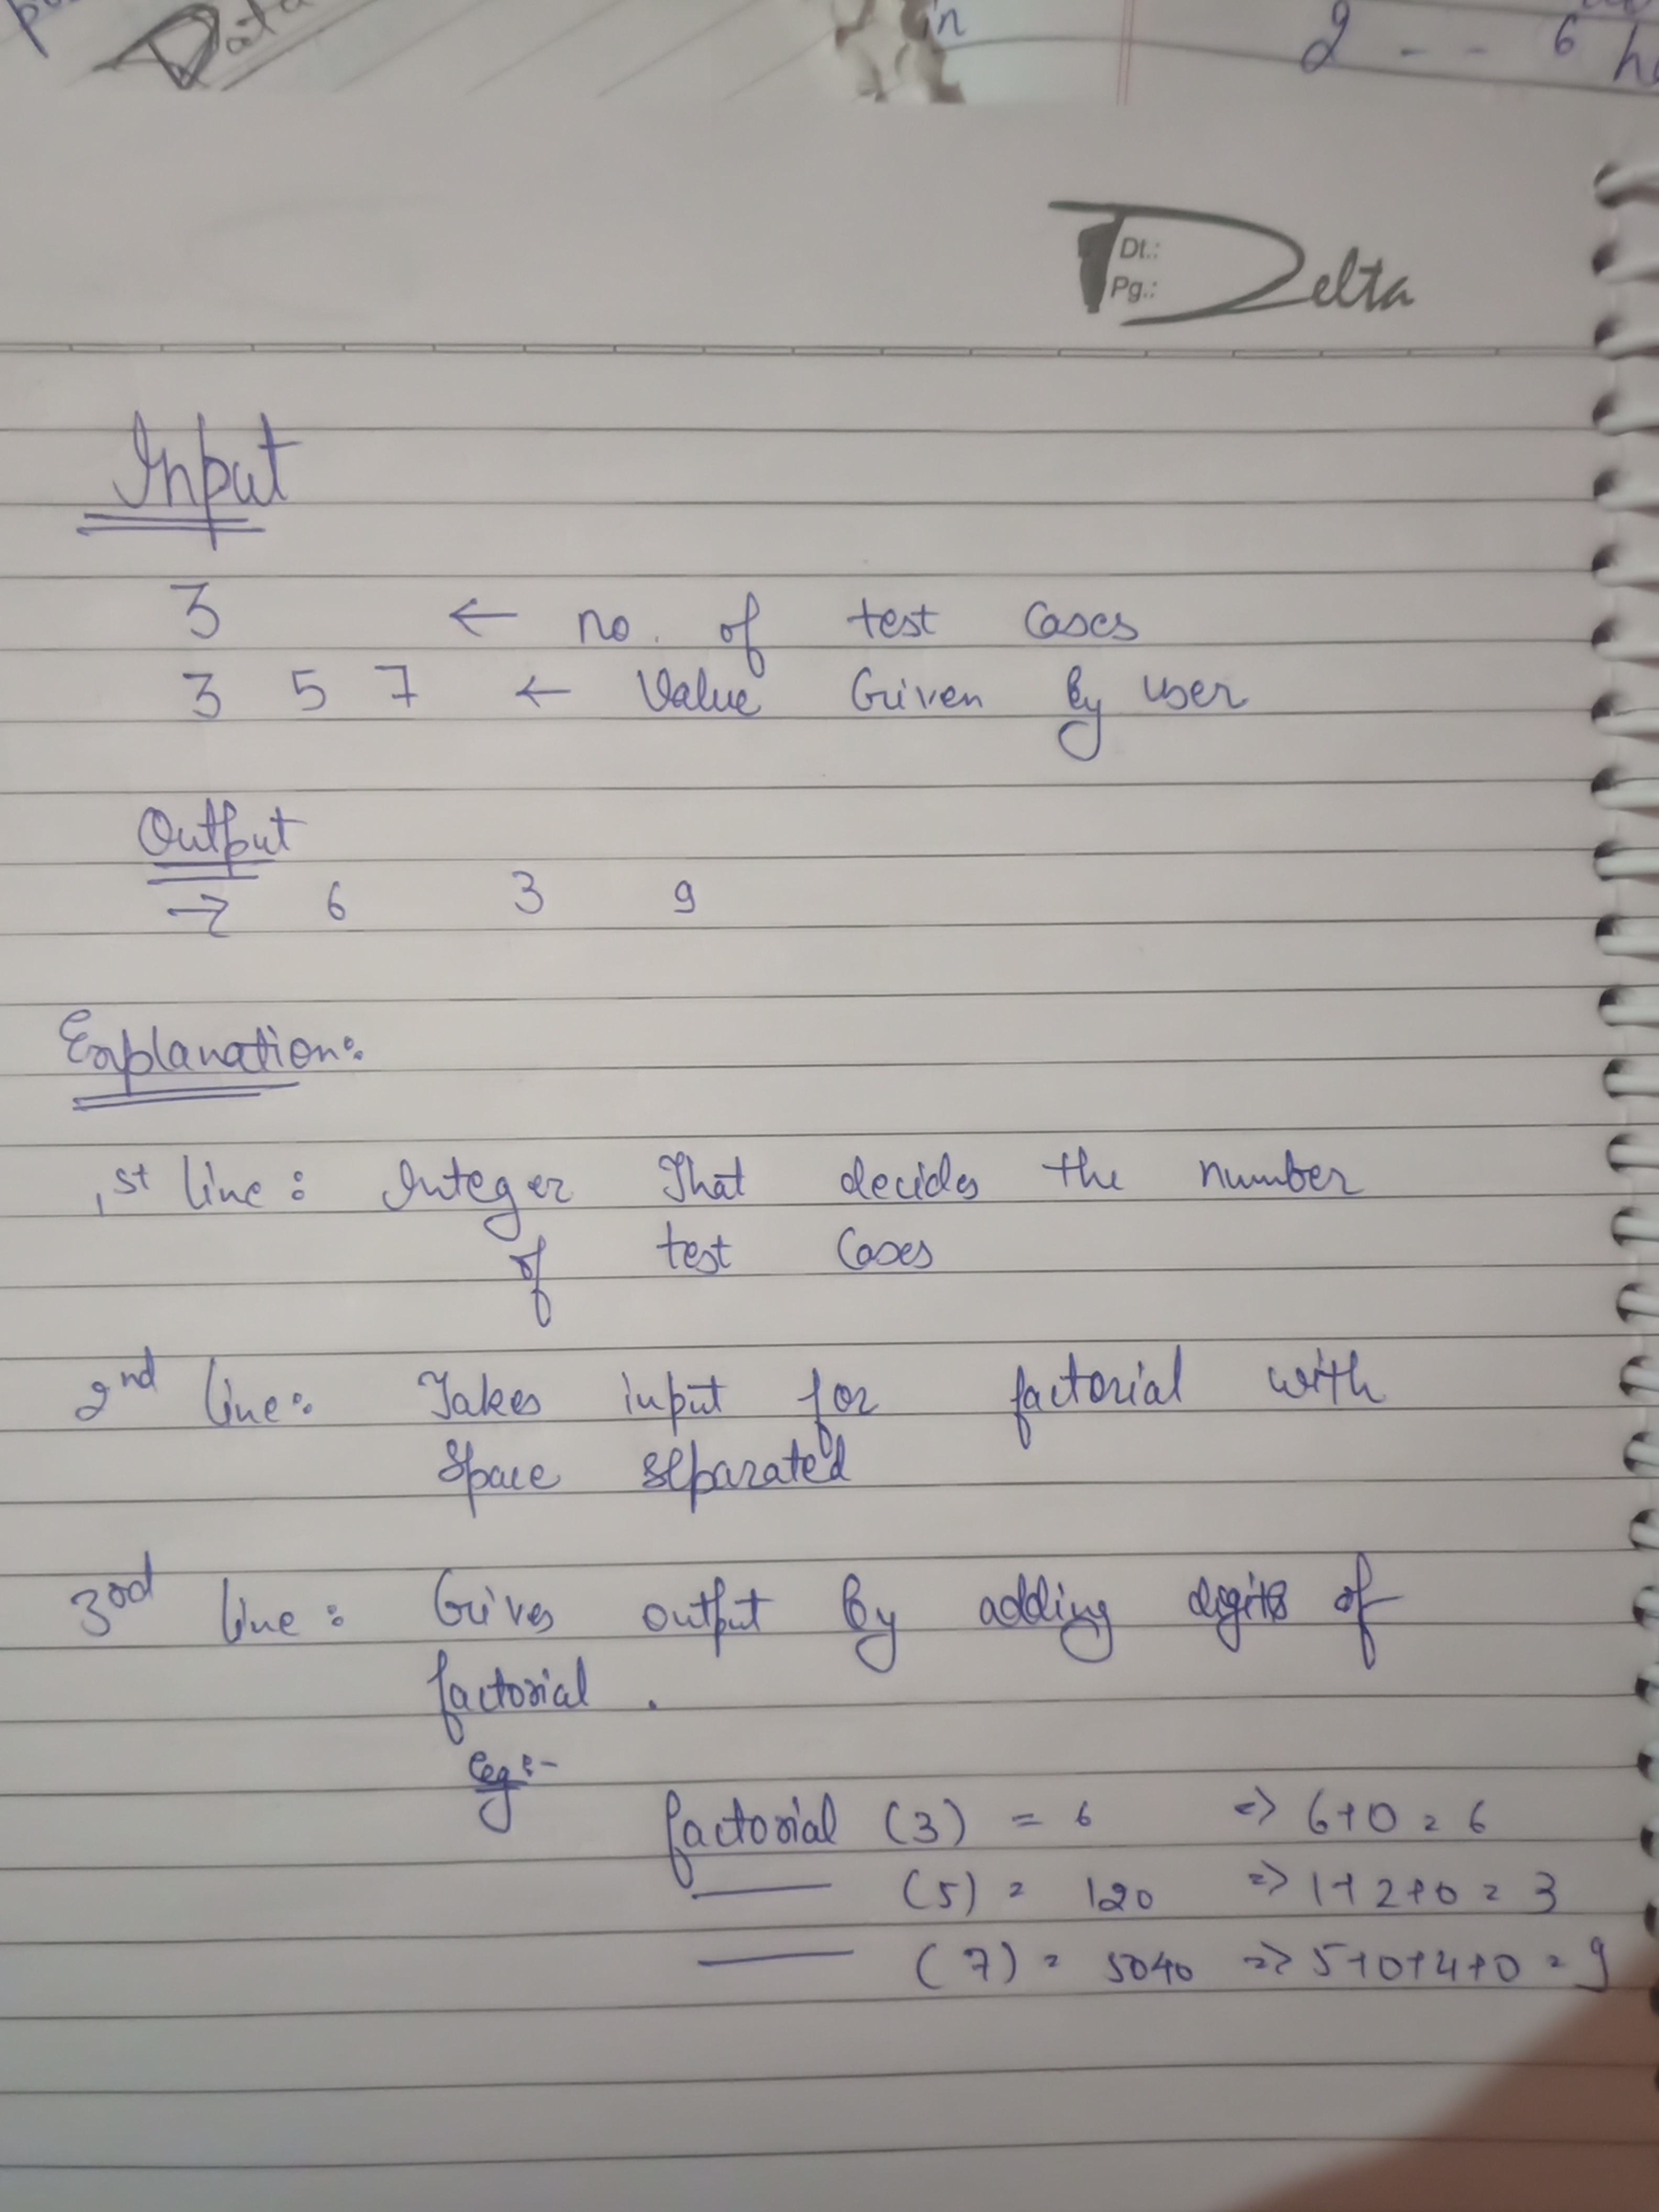 in
2 - - 6
Dt.:
Pg.:
Delta
Input
3 ← no. of test Cases
3 5 7 ← Value Given By user
Output
→ 6 3 9
Explanation:
1st line: Integer That decides the number
of test Cases
2nd line: Takes input for factorial with
Space separated
3rd line: Gives output By adding digits of
factorial.
eg:-
factorial (3) = 6 => 6+0 = 6
—— (5) = 120 => 1+2+0 = 3
—— (7) = 5040 => 5+0+4+0 = 9